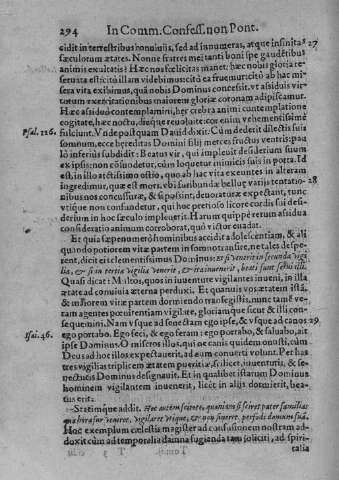 294 In Comm. Confess. non Pont.
cidit in terrestribus conuiuiis, sed ad innumeras, atque infinitas 27
sæculorum ætates. Nonne fratres mei tanti boni spe gaudétibus
animis exultatis? Hæc nos fœlicitas manet: hæc nobis gloria re-
seruata est: icto illam videbimus cito ea fruemur: cito ab hac mi-
sera vita exibimus, quá nobis Dominus concessit, vt assiduis vir-
tutum exercitationibus maiorem gloriæ coronam adipiscamur.
Hæc assiduo contemplamini, hęc crebra animi contemplatione
cogitate, hæc noctu, dieque reuoluite: eos enim vehementissimè
Psal. 126. fulciunt. Vnde postquam Dauid dixit: Cùm dederit dilectis suis
somnum, ecce hereditas Domini filij merces fructus ventris: pau
lò inferiùs subdidit: Beatus vir, qui impleuit desiderium suum
ex ipsis: non cōfundetur, cùm loquetur inimicis suis in porta. Id
est, in illo arctissimo ostio, quo ab hac vita exeuntes in alteram
ingredimur, quæ est mors. vbi furibundæ belluę variis tentatio- 28
nibus nos concussuræ, & si possint, deuoraturæ expectant, tunc
vtique non confundetur, qui hoc pretioso licore cordis sui desi-
derium in hoc sæculo impleuerit. Harum quippè rerum assidua
consideratio animum corroborat, quò victor euadat.
Et quia sæpenumerò hominibus accidit adolescentiam, & ali
quando potiorem vitæ partem in somno transire, ne tales despe-
rent, dicit eis clementissimus Dominus: Et si venerit in secunda vigi
lia, & si in tertia vigilia venerit, & ita inuenerit, beati sunt serui illi.
Quasi dicat: Multos, quos in iuuentute vigilantes inueni, in illa
ætate ad conuiuia æterna perduxi. Et quamuis vos ætatem istā,
& maiorem vitæ partem dormiendo transegistis, nunc tamē ve-
tam agentes pœnitentiam vigilate, gloriamque sicut & illi con-
sequemini. Nam vsque ad senectam ego ipse, & vsque ad canos 29
Isai. 46. ego portabo. Ego feci, & ego feram: ego portabo, & saluabo, ait
ipse Dominus. O miseros illos, qui ne canis quidem onusti, cùm
Deus ad hoc illos expectauerit, ad eum conuerti volunt. Per has
tres vigilias triplicem ætatem pueritiæ, scilicet, iuuentutis, & se-
nectutis Dominus designauit. Et in qualibet istarum Dominus
hominem vigilantem inuenerit, licèt in aliis dormierit, bea-
tus erit.
Statimque addit. Hoc autem scitote, quoniam si sciret pater familias
qua hora fur veniret, vigilaret vtique, & non sineret perfodi domum suā.
Hoc exemplum cælestis magister ad confusionem nostram ad-
duxit: cùm ad temporalia damna fugienda tam soliciti, ad spiri-
talia